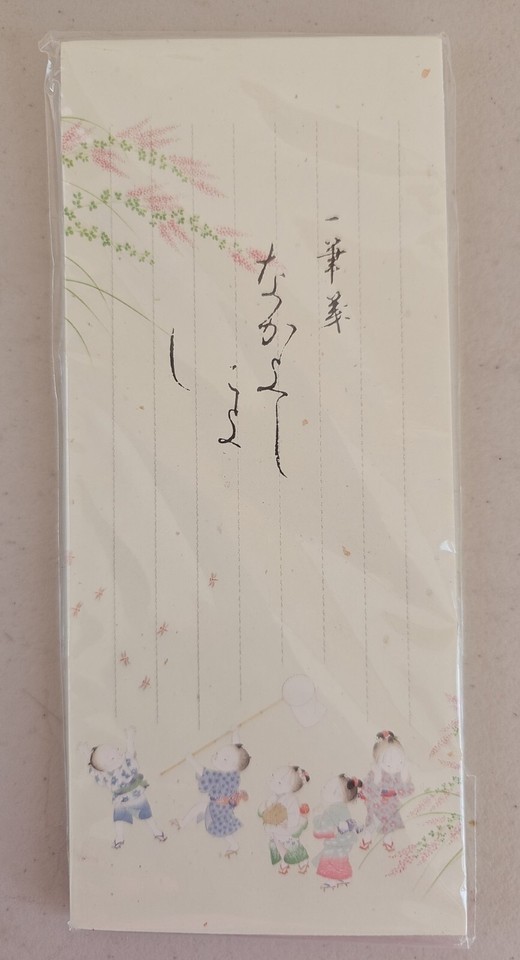 一筆箋
なかよし
こよ
し